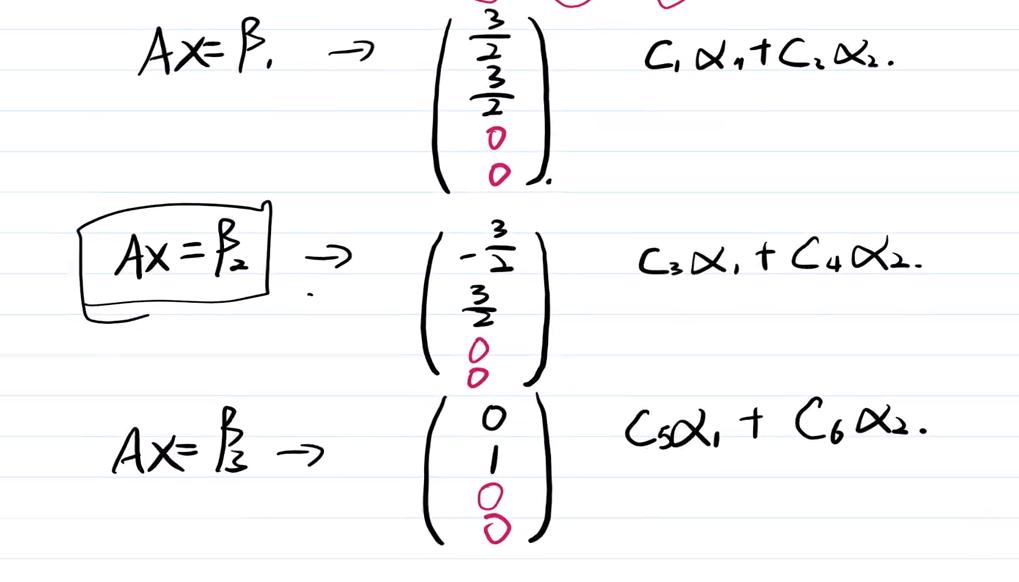 Ax=β₁ → (3/2 3/2 0 0). C₁α₁+C₂α₂.
Ax=β₂ → (-3/2 3/2 0 0) C₃α₁+C₄α₂.
Ax=β₃ → (0 1 0 0) C₅α₁+C₆α₂.